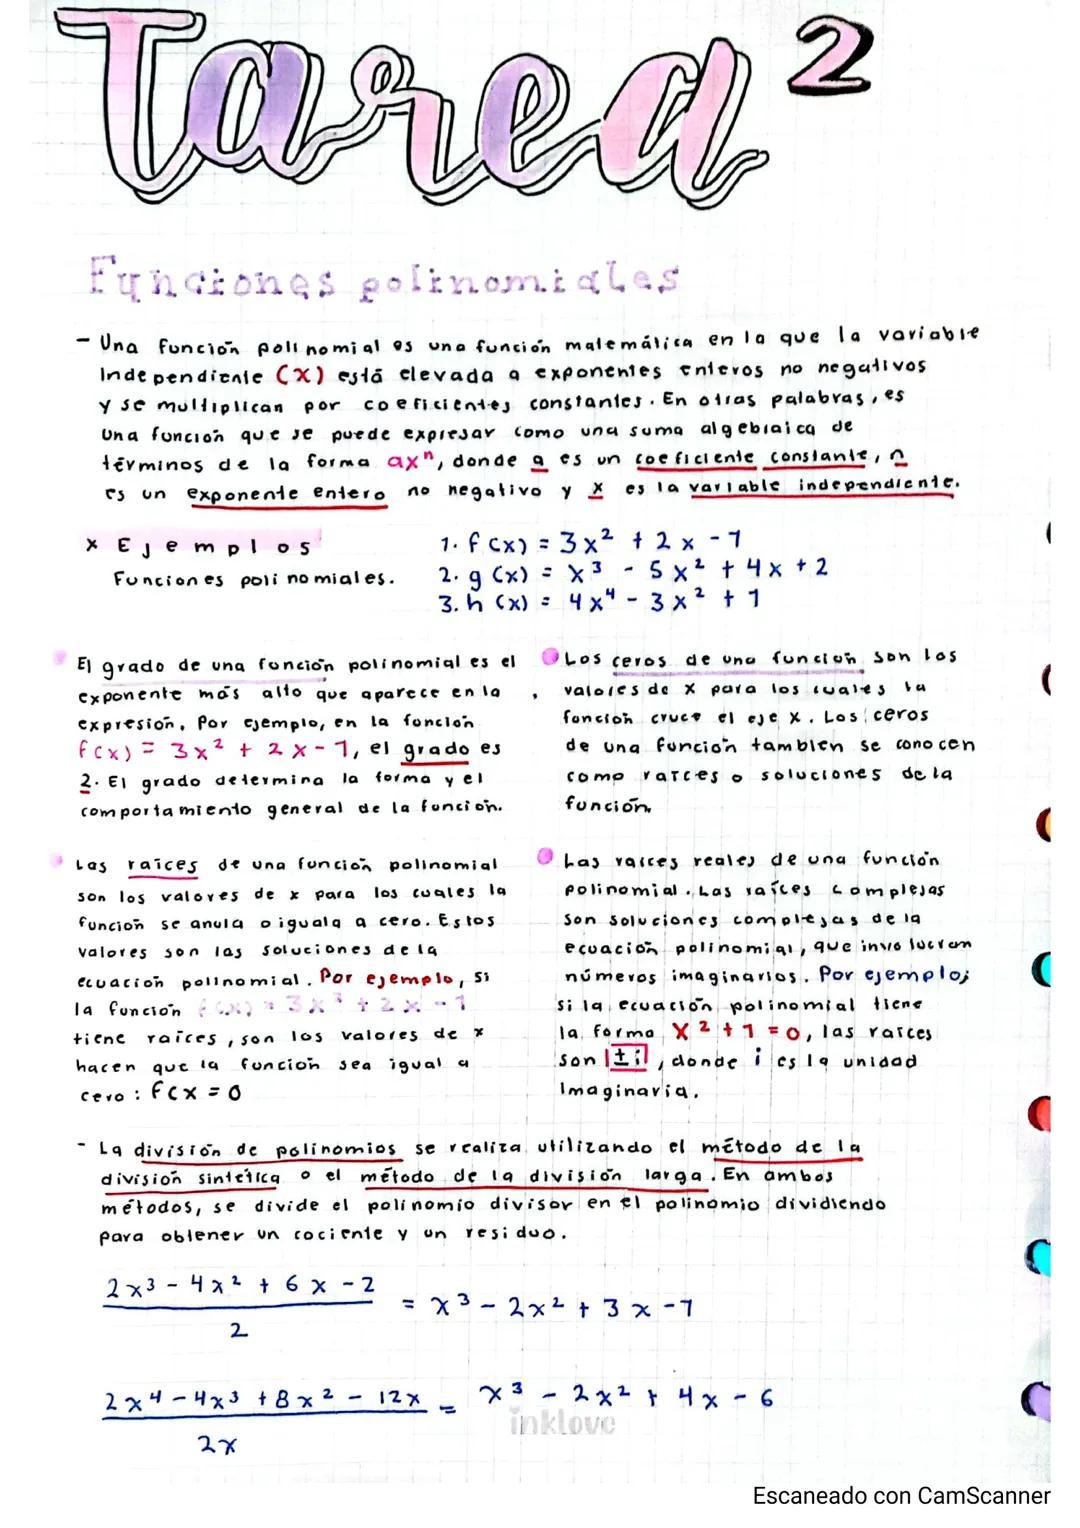 Tarea 2
Funciones polinomiales
- Una función polinomial es una función matemática en la que la variable
Independiente (x) está elevada a exponentes enteros no negativos
y se multiplican por coeficientes constantes. En otras palabras, es
una función que se puede expresar como una suma algebraica de
términos de la forma axⁿ, donde a es un coeficiente constante, n
es un exponente entero no negativo y x es la variable independiente.
x Ejemplos
Funciones polinomiales.
1. f(x) = 3x² + 2x - 1
2. g(x) = x³ - 5x² + 4x + 2
3. h(x) = 4x⁴ - 3x² + 1
El grado de una función polinomial es el
exponente más alto que aparece en la
expresión. Por ejemplo, en la función
f(x) = 3x² + 2x - 1, el grado es
2. El grado determina la forma y el
comportamiento general de la función.
Los ceros de una función son los
valores de x para los cuales la
función cruce el eje x. Los ceros
de una función también se conocen
como raíces o soluciones de la
función.
Las raíces de una función polinomial
son los valores de x para los cuales la
función se anula o iguala a cero. Estos
valores son las soluciones de la
ecuación polinomial. Por ejemplo, si
la función f(x) = 3x² + 2x - 1
tiene raíces, son los valores de x
hacen que la función sea igual a
cero: f(x = 0
Las raíces reales de una función
polinomial. Las raíces complejas
son soluciones complejas de la
ecuación polinomial, que involucran
números imaginarios. Por ejemplo;
si la ecuación polinomial tiene
la forma x² + 1 = 0, las raíces
son ±i, donde i es la unidad
Imaginaria.
- La división de polinomios se realiza utilizando el método de la
división sintética o el método de la división larga. En ambos
métodos, se divide el polinomio divisor en el polinomio dividiendo
para obtener un cociente y un residuo.
2x³ - 4x² + 6x - 2
= x³ - 2x² + 3x - 1
2
2x⁴ - 4x³ + 8x² - 12x = x³ - 2x² + 4x - 6
inklove
2x
Escaneado con CamScanner